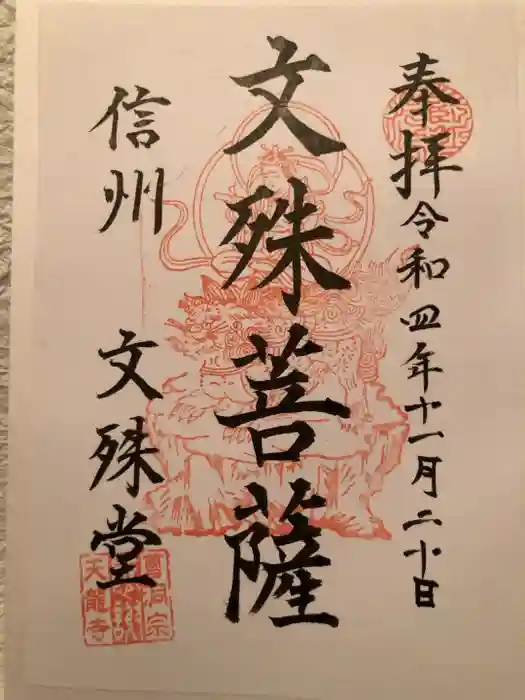 奉拝 令和四年十一月二十日
文殊菩薩
信州 文殊堂
曹洞宗
天龍寺